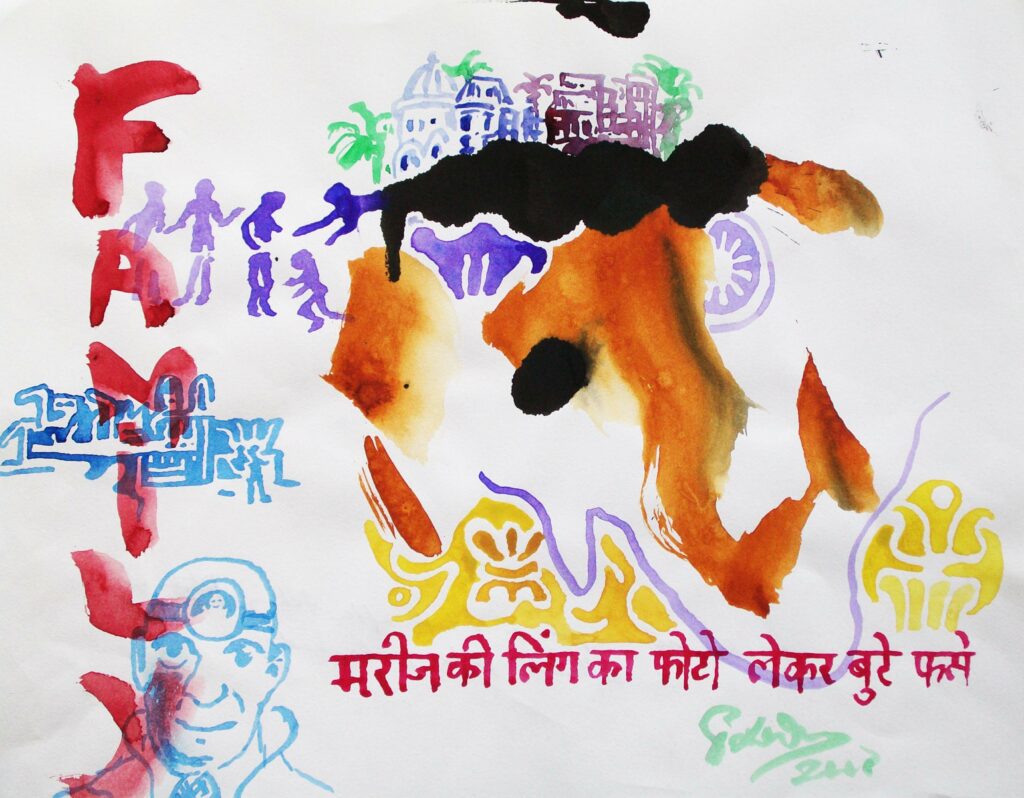 FAMILY
मरीज की लिंग का फोटो लेकर बुरे फसे